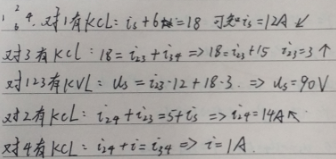 1 2 4. 对1有KCL: i₅+6=18 可知i₅=12A ↙
6
对3有KCL: 18=i₂₃+i₃₄ => 18=i₂₃+15 i₂₃=3↑
对123有KVL: U₅=i₂₃·12+18·3. => U₅=90V
对2有KCL: i₂₄+i₂₃=5+i₅ => i₂₄=14A↖
对4有KCL: i₂₄+i=i₃₄ => i=1A.